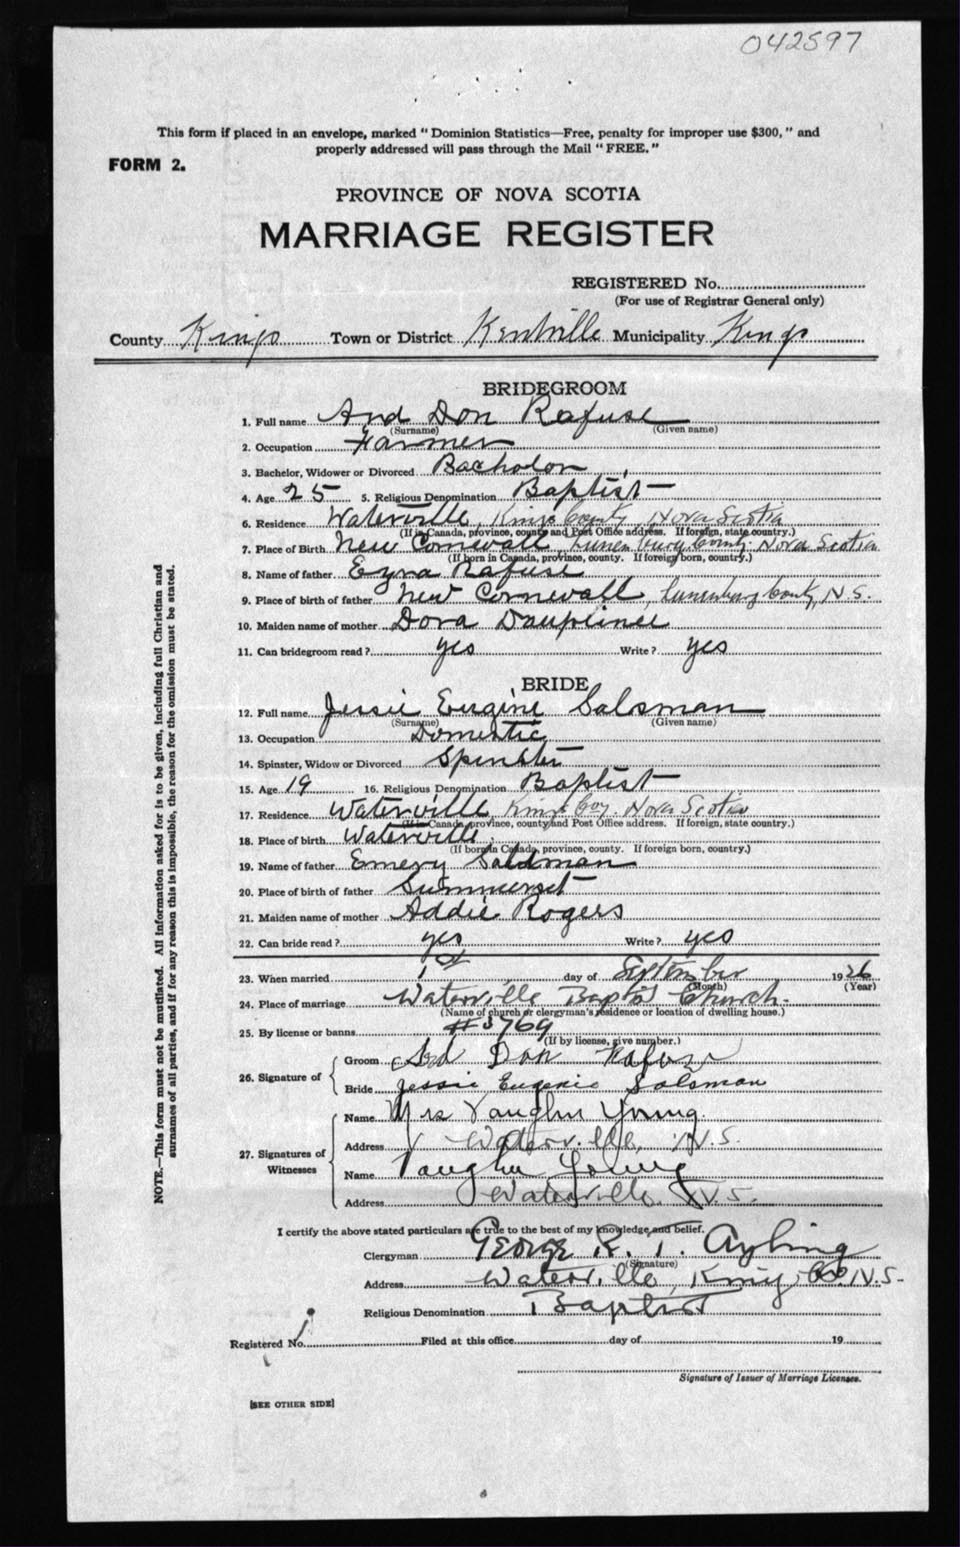 042597
This form if placed in an envelope, marked “Dominion Statistics—Free, penalty for improper use $300,” and
properly addressed will pass through the Mail “FREE.”
FORM 2.
PROVINCE OF NOVA SCOTIA
MARRIAGE REGISTER
REGISTERED No.
(For use of Registrar General only)
County Kings Town or District Kentville Municipality Kings
BRIDEGROOM
1. Full name Ard Don Rafuse
(Surname) (Given name)
2. Occupation Farmer
3. Bachelor, Widower or Divorced Bachelor
4. Age 25 5. Religious Denomination Baptist
6. Residence Waterville, Kings County, Nova Scotia
(If in Canada, province, county and Post Office address. If foreign, state country.)
7. Place of Birth New Cornwall Lunenburg County Nova Scotia
(If born in Canada, province, county. If foreign born, country.)
8. Name of father Ezra Rafuse
9. Place of birth of father New Cornwall, Lunenburg County, N.S.
10. Maiden name of mother Dora Dauplinee
11. Can bridegroom read? yes Write? yes
BRIDE
12. Full name Jessie Eugine Salsman
(Surname) (Given name)
13. Occupation Domestic
14. Spinster, Widow or Divorced Spinster
15. Age 19 16. Religious Denomination Baptist
17. Residence Waterville, Kings Coy, Nova Scotia
(If in Canada, province, county and Post Office address. If foreign, state country.)
18. Place of birth Waterville
(If born in Canada, province, county. If foreign born, country.)
19. Name of father Emery Salsman
20. Place of birth of father Summerset
21. Maiden name of mother Addie Rogers
22. Can bride read? yes Write? yes
23. When married 1st day of September 1926
(Month) (Year)
24. Place of marriage Waterville Baptist Church.
(Name of church or clergyman's residence or location of dwelling house.)
25. By license or banns #3769
(If by license, give number.)
26. Signature of { Groom Ard Don Rafuse
Bride Jessie Eugenie Salsman
27. Signatures of Witnesses { Name Mrs Vaughn Young.
Address Waterville, N.S.
Name Vaughn Young
Address Waterville N.S.
I certify the above stated particulars are true to the best of my knowledge and belief.
Clergyman George R. T. Ayling
(Signature)
Address Waterville, Kings Co. N.S.
Religious Denomination Baptist
Registered No. Filed at this office day of 19
Signature of Issuer of Marriage Licenses.
[SEE OTHER SIDE]
NOTE.—This form must not be mutilated. All information asked for is to be given, including full Christian and
surnames of all parties, and if for any reason this is impossible, the reason for the omission must be stated.